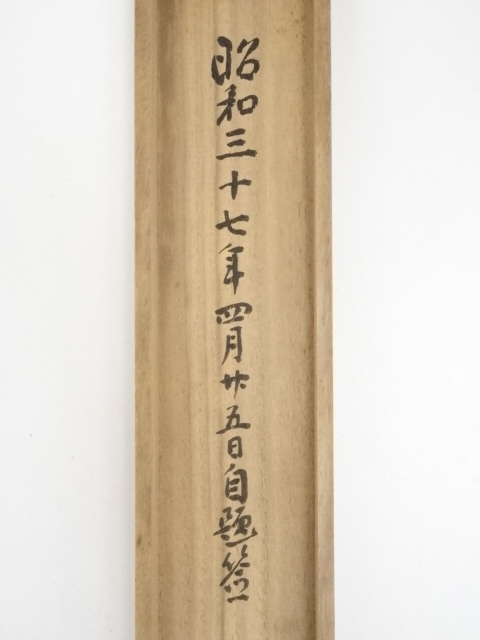 昭和三十七年四月廿五日自題签